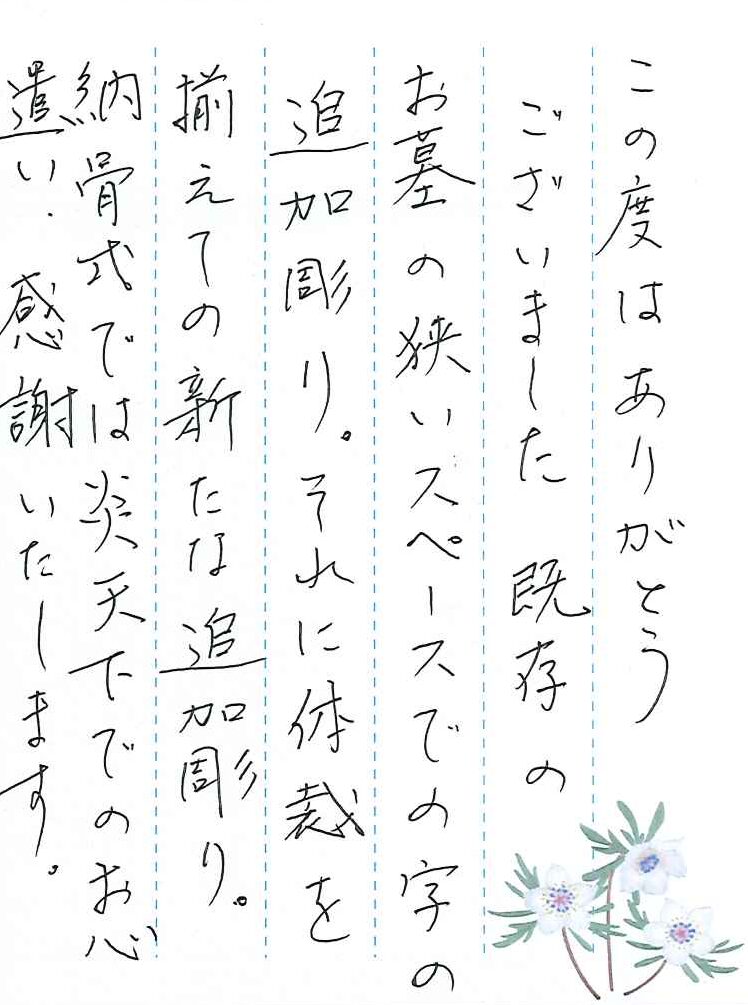 この度はありがとう
ございました 既存の
お墓の狭いスペースでの字の
追加彫り。それに体裁を
揃えての新たな追加彫り。
納骨式では炎天下でのお心
遣い、感謝いたします。